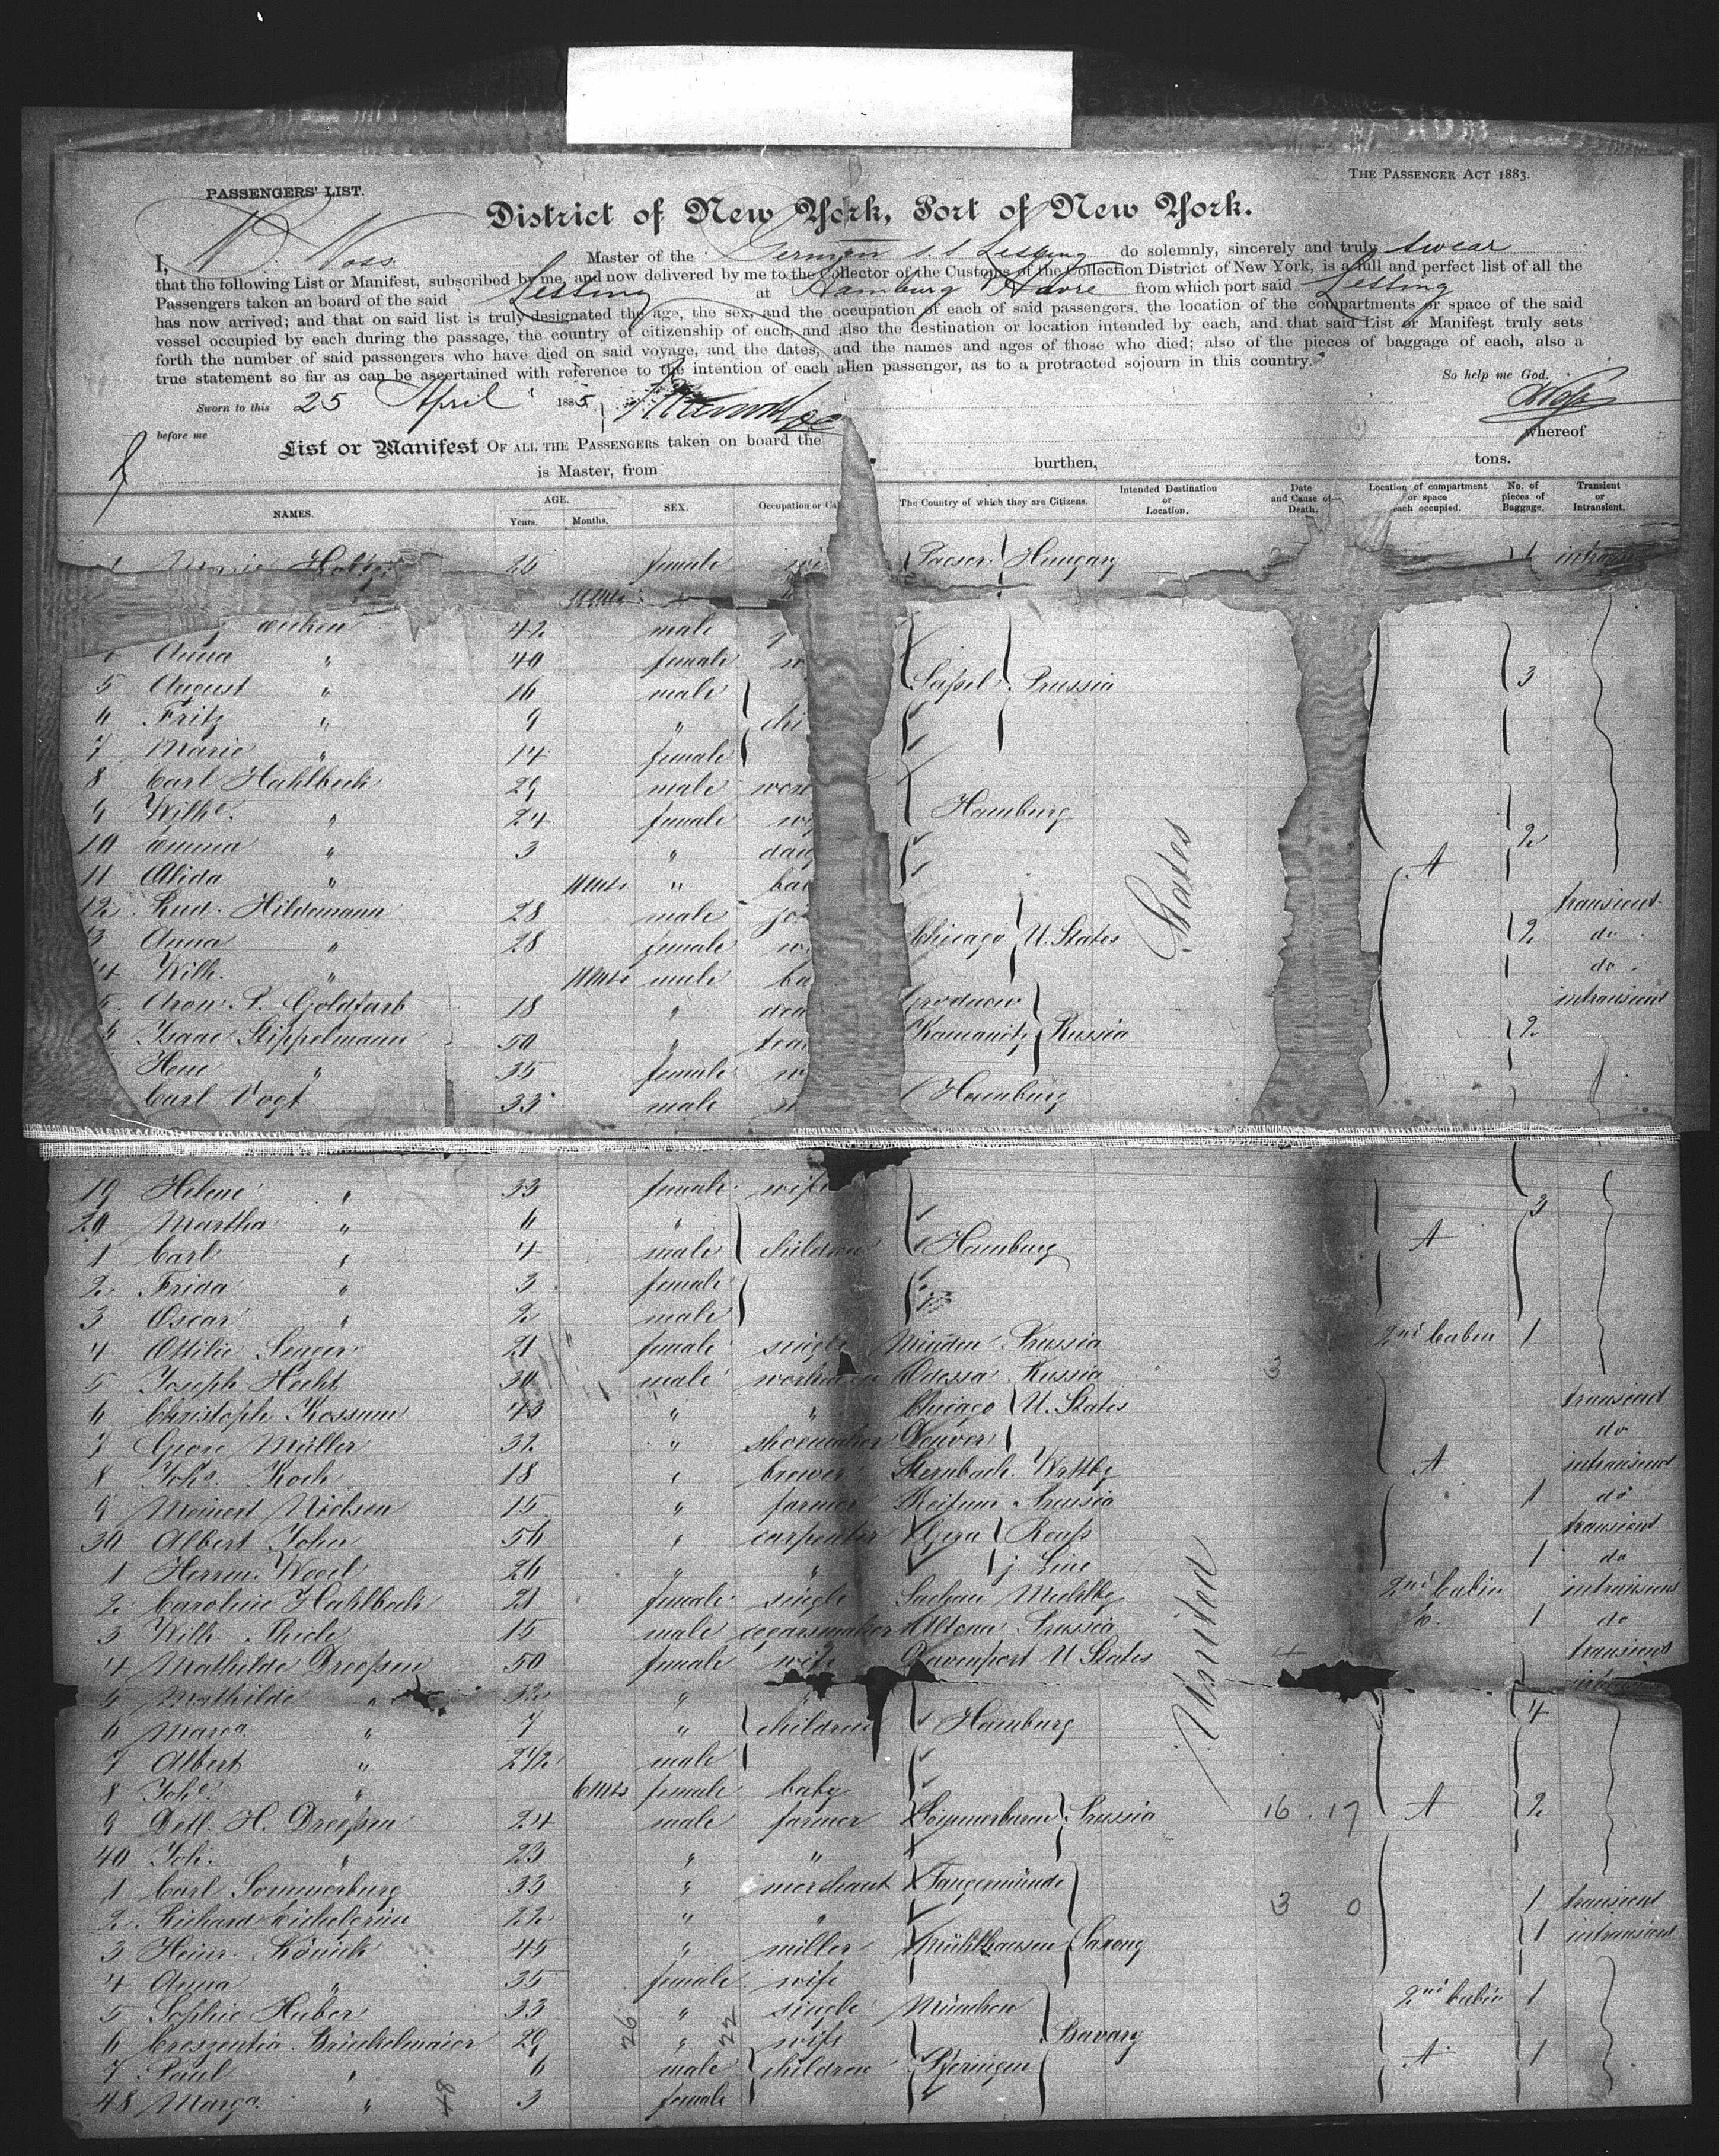 PASSENGERS' LIST.
THE PASSENGER ACT 1883.
District of New York, Port of New York.
I, Voss Master of the German s.s. Lessing do solemnly, sincerely and truly swear
that the following List or Manifest, subscribed by me, and now delivered by me to the Collector of the Customs of the Collection District of New York, is a full and perfect list of all the
Passengers taken an board of the said Lessing at Hamburg Havre from which port said Lessing
has now arrived; and that on said list is truly designated the age, the sex, and the occupation of each of said passengers, the location of the compartments or space of the said
vessel occupied by each during the passage, the country of citizenship of each, and also the destination or location intended by each, and that said List or Manifest truly sets
forth the number of said passengers who have died on said voyage, and the dates, and the names and ages of those who died; also of the pieces of baggage of each, also a
true statement so far as can be ascertained with reference to the intention of each alien passenger, as to a protracted sojourn in this country.
So help me God.
Sworn to this 25 April 1885
before me
List or Manifest OF ALL THE PASSENGERS taken on board the whereof
is Master, from burthen, tons.
NAMES. AGE. Years. Months. SEX. Occupation or Ca The Country of which they are Citizens. Intended Destination or Location. Date and Cause of Death. Location of compartment or space each occupied. No. of pieces of Baggage. Transient or Intransient.
1 Marie 26 female Hungary 1
11 Mts
42 male
Anna " 40 female
5 August " 16 male Cassel Prussia 3
6 Fritz " 9 " chi
7 Marie " 14 female
8 Carl Hahlbeck 29 male wor
9 Wilhe. " 24 female Hamburg
10 Emma " 3 " dau 2
11 Alida " 11 Mts " ba A
12 Rud. Hildemann 28 male jo transient
3 Anna " 28 female w Chicago U. States 2 do
4 Wilh. " 11 Mts male ba do
5 Aron S. Goldfarb 18 " intransient
Isaac Stippelmann 50 " Russia 2
" 35 female w
Carl Vogt 33 male Hamburg
19 Helene " 33 female wife 3
20 Martha " 6 "
1 Carl " 4 male children Hamburg A
2 Frida " 3 female
3 Oscar " 2 male
4 Ottilie Senger 21 female single Minden Prussia 2nd Cabin 1
5 Joseph Hecht 30 male workman Odessa Russia 3
6 Christoph Rossum 43 " " Chicago U. States transient
7 Müller 32 " shoemaker Denver do
8 Johs. Koch 18 " brewer A intransient
9 Meinert Nielsen 15 " farmer Keitum Prussia 1 do
30 Albert John 56 " carpenter Gera Reuss transient
1 Herm. 26 " " j. Line 1 do
2 Caroline Hahlbeck 21 female single 2nd Cabin intransient
3 Wilh. Thiele 15 male Altona Prussia 1 do
4 Mathilde Dreessen 50 female wife Davenport U States transient
5 Mathilde " 32 "
6 Marga " 7 " children Hamburg 4
7 Albert " 2 1/2 male
8 Johe. " 6 Mts female baby
9 Detl. H. Dreessen 24 male farmer Prussia 16 17 A 2
40 Joh. " 23 " "
1 Carl Sommerburg 33 " merchant Tangermünde
2 Richard 22 " " 3 0 1 transient
3 Heinr. König 45 " miller Mühlhausen Saxony 1 intransient
4 Anna " 35 female wife
5 Sophie Huber 33 " single München 2nd Cabin 1
6 Creszentia Brückelmaier 29 " wife Bavary
7 Paul " 6 male children A 1
48 Marga. " 3 female
United States
26
22
48